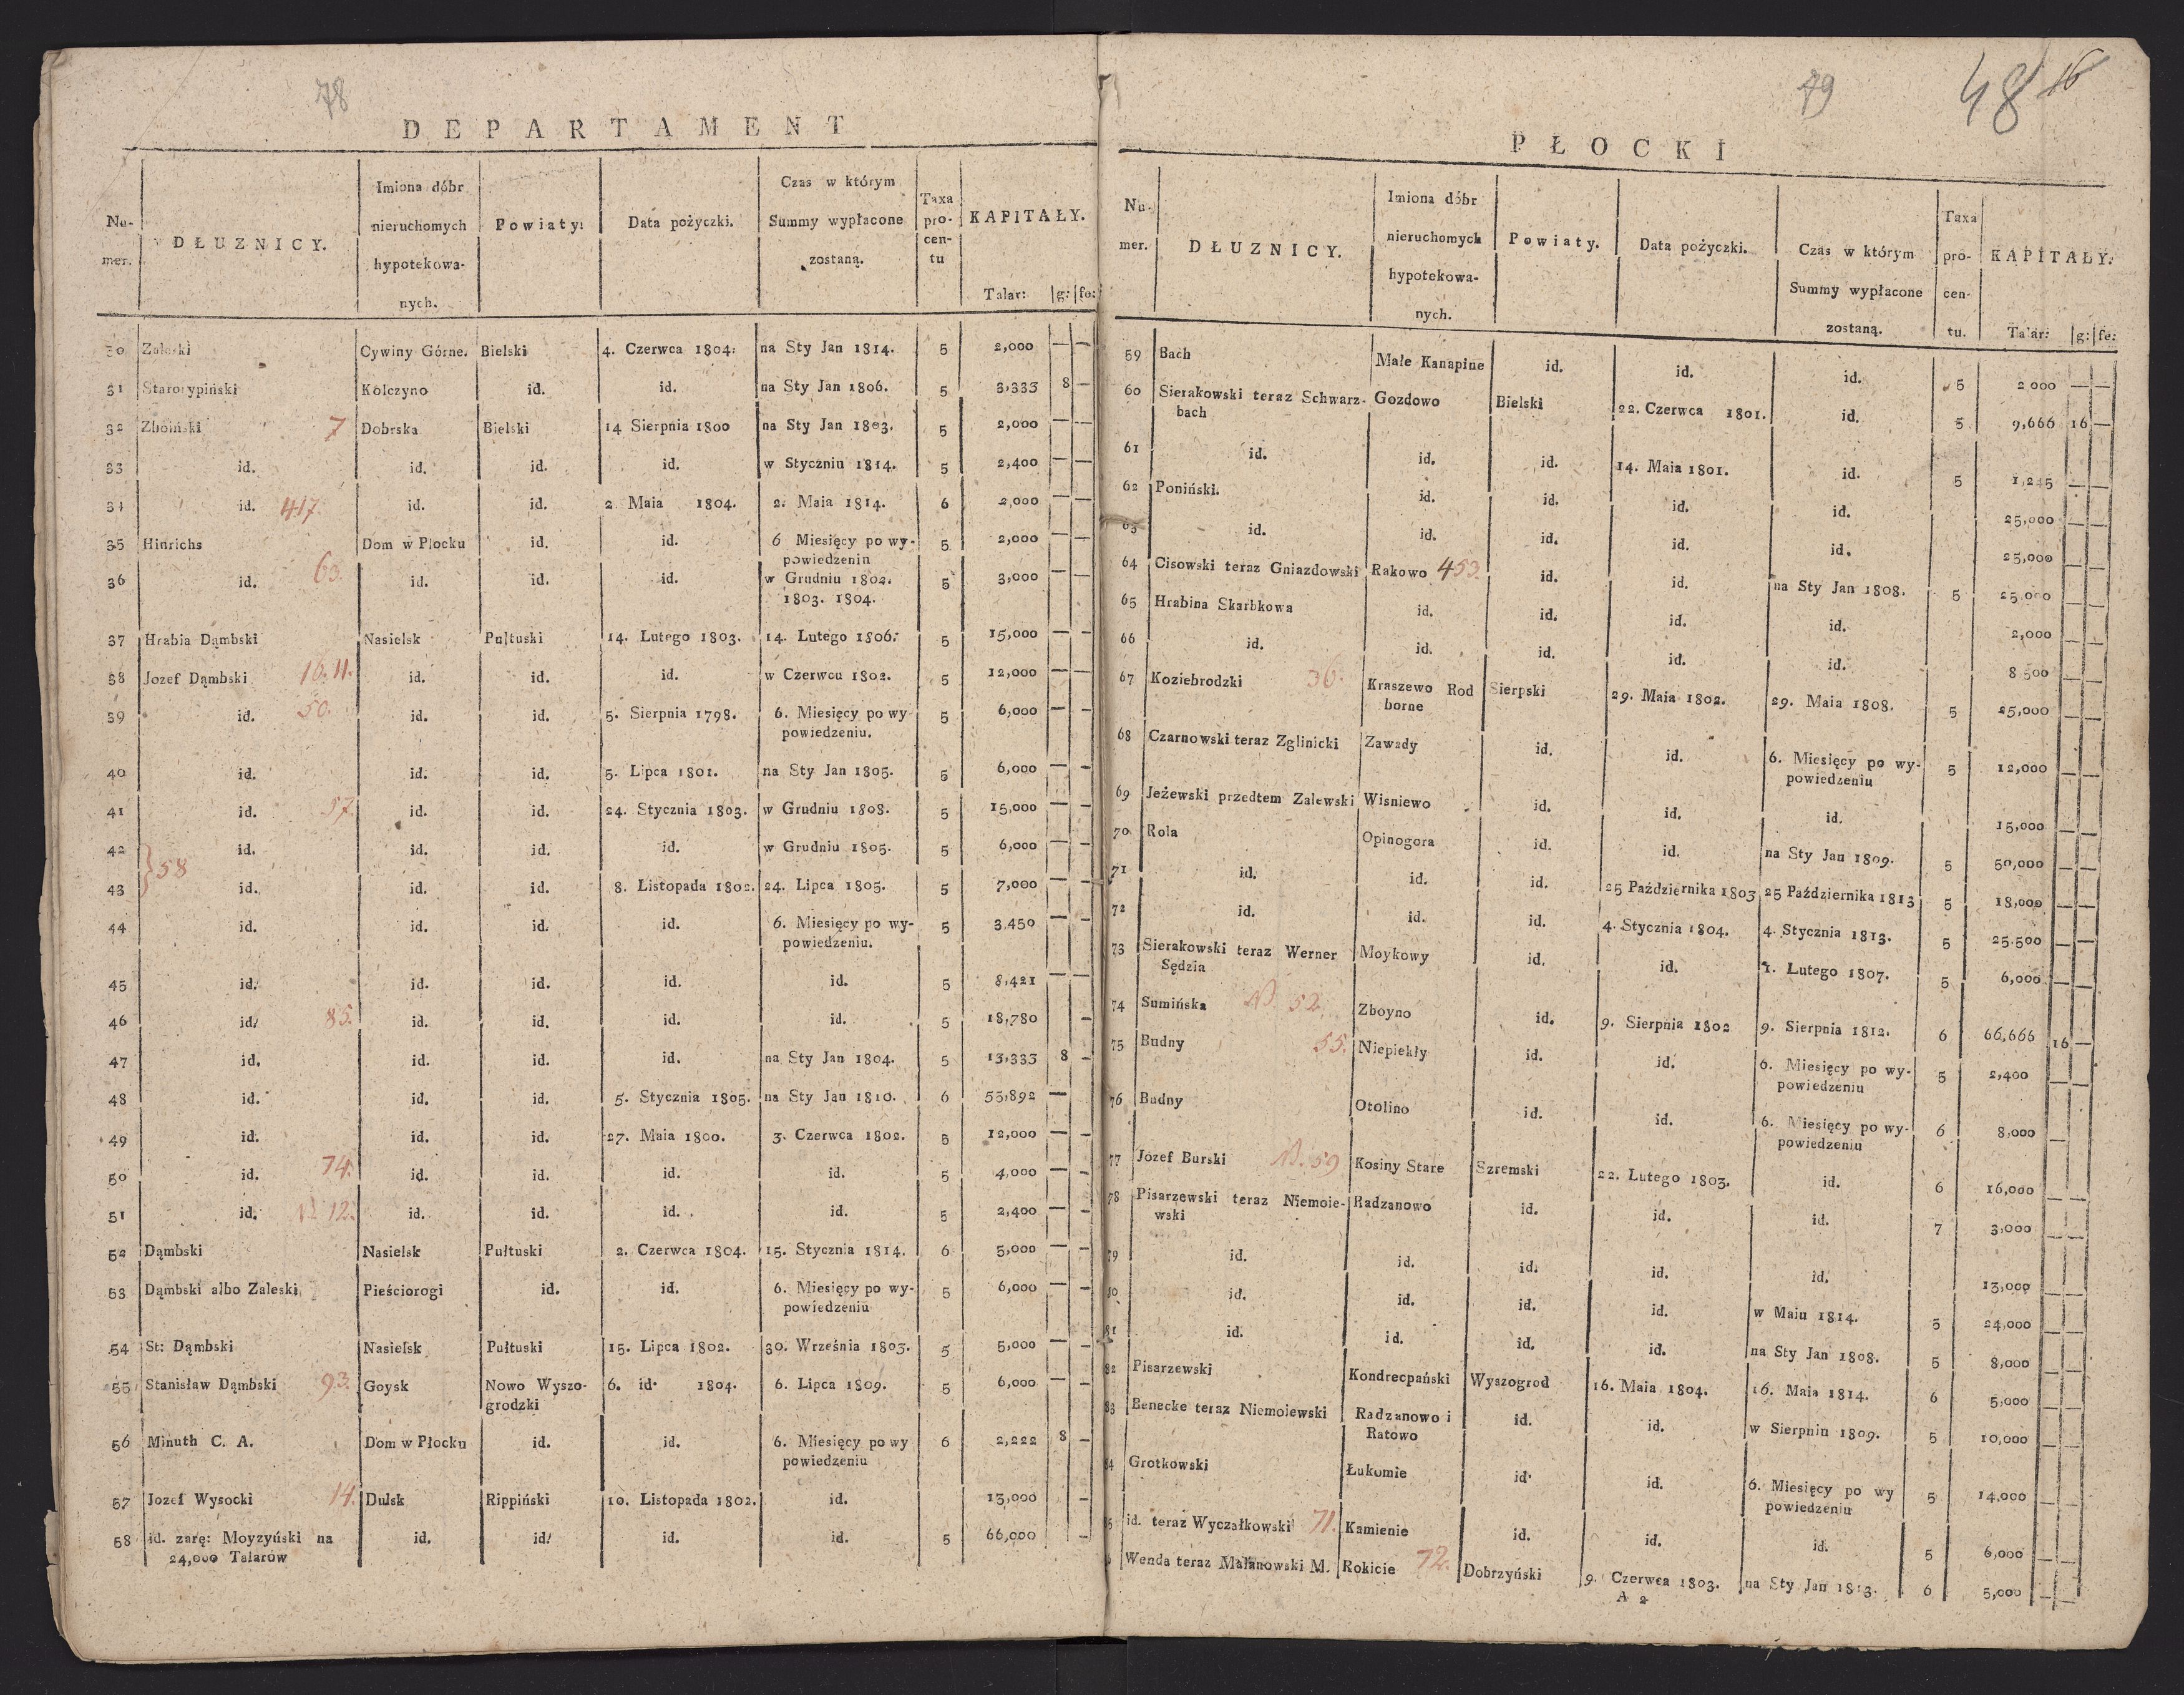 78
DEPARTAMENT
Nu- mer. DŁUZNICY. Imiona dóbr nieruchomych hypotekowa- nych. Powiaty: Data pożyczki. Czas w którym Summy wypłacone zostaną. Taxa pro- cen- tu KAPITAŁY. Talar: g: fe:
30 Zaleski Cywiny Górne. Bielski 4. Czerwca 1804. na Sty Jan 1814. 5 2,000 — —
31 Starorypiński Kolczyno id. id. na Sty Jan 1806. 5 3,333 8 —
32 Zboiński 7 Dobrska Bielski 14 Sierpnia 1800 na Sty Jan 1803. 5 2,000 — —
33 id. id. id. id. w Styczniu 1814. 5 2,400 — —
34 id. 417. id. id. 2 Maia 1804. 2. Maia 1814. 6 2,000 — —
35 Hinrichs Dom w Płocku id. id. 6 Miesięcy po wy-
powiedzeniu 5 2,000 — —
36 id. 63. id. id. id. w Grudniu 1802.
1803. 1804. 5 3,000 — —
37 Hrabia Dąmbski Nasielsk Pułtuski 14. Lutego 1803. 14. Lutego 1806. 5 15,000 — —
38 Jozef Dąmbski 16.11. id. id. id. w Czerwcu 1802. 5 12,000 — —
39 id. 50. id. id. 5. Sierpnia 1798. 6. Miesięcy po wy
powiedzeniu. 5 6,000 — —
40 id. id. id. 5. Lipca 1801. na Sty Jan 1805. 5 6,000 — —
41 id. 57. id. id. 24. Stycznia 1803. w Grudniu 1808. 5 15,000 — —
42 id. id. id. id. w Grudniu 1805. 5 6,000 — —
}58
43 id. id. id. 8. Listopada 1802. 24. Lipca 1805. 5 7,000 — —
44 id. id. id. id. 6. Miesięcy po wy-
powiedzeniu. 5 3,450 — —
45 id. id. id. id. id. 5 8,421 — —
46 id. 85. id. id. id. id. 5 18,780 —
47 id. id. id. id. na Sty Jan 1804. 5 13,333 8 —
48 id. id. id. 5. Stycznia 1805. na Sty Jan 1810. 6 53,892 —
49 id. id. id. 27. Maia 1800. 3. Czerwca 1802. 5 12,000 — —
50 id. 74. id. id. id. id. 5 4,000 — —
51 id. 12. id. id. id. id. 5 2,400 — —
52 Dąmbski Nasielsk Pułtuski 2. Czerwca 1804. 15. Stycznia 1814. 6 5,000 — —
53 Dąmbski albo Zaleski Pieściorogi id. id. 6. Miesięcy po wy-
powiedzeniu 5 6,000 — —
54 St: Dąmbski Nasielsk Pułtuski 15. Lipca 1802. 30. Września 1803. 5 5,000 — —
55 Stanisław Dąmbski 93. Goysk Nowo Wyszo-
grodzki 6. id. 1804. 6. Lipca 1809. 5 6,000 — —
56 Minuth C. A. Dom w Płocku id. id. 6. Miesięcy po wy
powiedzeniu 6 2,222 8 —
57 Jozef Wysocki 14. Dulsk Rippiński 10. Listopada 1802. id. 13,000 —
58 id. zarę: Moyzyński na
24,000 Talarow id. id. id. id. 5 66,000 —
79 48 16
PŁOCKI
Nu- mer. DŁUZNICY. Imiona dóbr nieruchomych hypotekowa- nych. Powiaty. Data pożyczki. Czas w którym Summy wypłacone zostaną. Taxa pro- cen- tu. KAPITAŁY. Talar: g: fe:
59 Bach Małe Kanapine id. id. id. 5 2 000 — —
60 Sierakowski teraz Schwarz-
bach Gozdowo Bielski 22. Czerwca 1801. id. 5 9,666 16 —
61 id. id. id. 14. Maia 1801. id. 5 1,245 — —
62 Poniński. id. id. id. id. 25,000 — —
63 id. id. id. id. id. 25,000 — —
64 Cisowski teraz Gniazdowski Rakowo 453. id. id. na Sty Jan 1808. 5 25,000 — —
65 Hrabina Skarbkowa id. id. id. id. 2,000 — —
66 id. id. id. id. id. 8 500 — —
67 Koziebrodzki 36. Kraszewo Rod
borne Sierpski 29. Maia 1802. 29. Maia 1808. 5 25,000 — —
68 Czarnowski teraz Zglinicki Zawady id. id. 6. Miesięcy po wy-
powiedzeniu 5 12,000 — —
69 Jeżewski przedtem Zalewski Wisniewo id. id. id. 15,000 — —
70 Rola Opinogora id. id. na Sty Jan 1809. 5 50,000 — —
71 id. id. id. 25 Października 1803 25 Października 1813 5 18,000 — —
72 id. id. id. 4. Stycznia 1804. 4. Stycznia 1813. 5 25.500 — —
73 Sierakowski teraz Werner
Sędzia Moykowy id. id. 1. Lutego 1807. 5 6,000 — —
74 Sumińska 52. Zboyno id. 9. Sierpnia 1802 9. Sierpnia 1812. 6 66,666 16 —
75 Budny 55. Niepiekły id. id. 6. Miesięcy po wy-
powiedzeniu 5 2,400 — —
76 Budny Otolino id. id. 6. Miesięcy po wy-
powiedzeniu 6 8,000 —
77 Józef Burski 59 Kosiny Stare Szremski 22. Lutego 1803. id. 6 16,000 — —
78 Pisarzewski teraz Niemoie-
wski Radzanowo id. id. id. 7 3,000 — —
79 id. id. id. id. id. 13,000 — —
80 id. id. id. id. w Maiu 1814. 5 24,000 — —
81 id. id. id. id. na Sty Jan 1808. 5 8,000 — —
82 Pisarzewski Kondrecpański Wyszogrod 16. Maia 1804. 16. Maia 1814. 6 5,000 — —
83 Benecke teraz Niemoiewski Radzanowo i
Ratowo id. id. w Sierpniu 1809. 5 10,000 — —
84 Grotkowski Łukomie id. id. 6. Miesięcy po wy
powiedzeniu 5 14,000 — —
5 id. teraz Wyczałkowski 71. Kamienie id. id. id. 5 6,000 — —
Wenda teraz Małanowski M. Rokicie 72. Dobrzyński 9. Czerwca 1803. na Sty Jan 1813. 6 5,000 — —
A 2